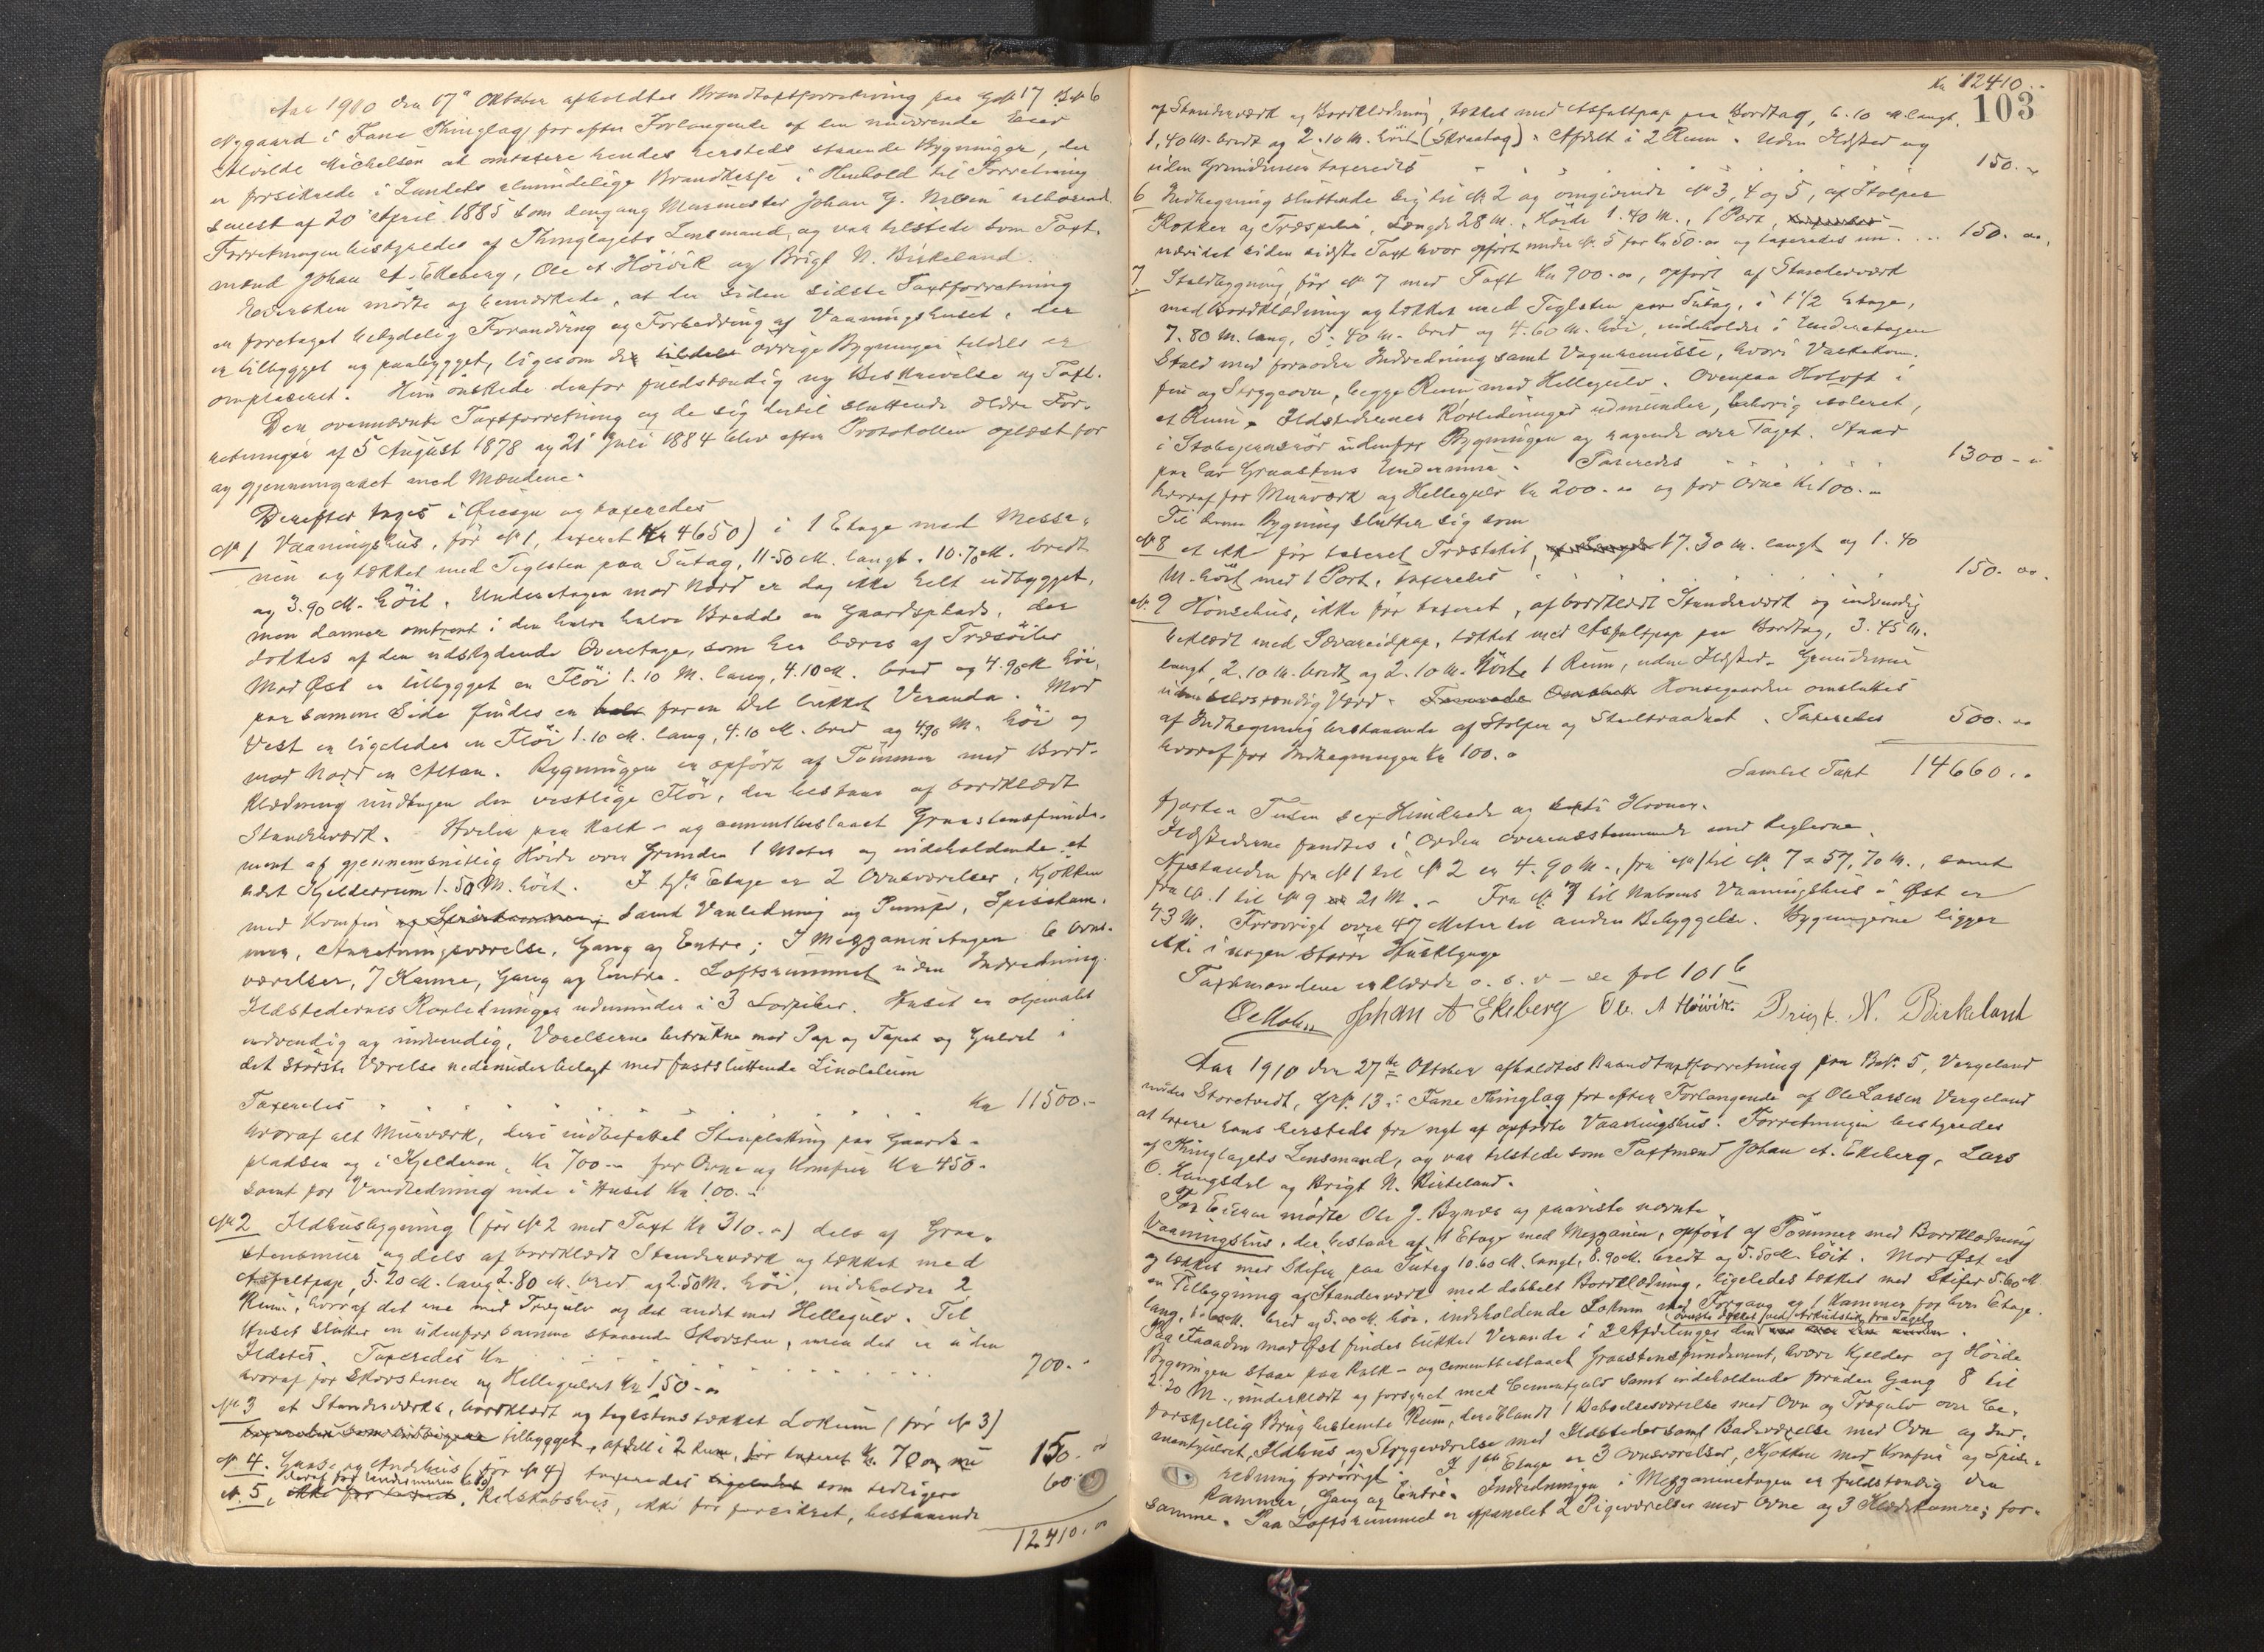 Aar 1910 den 17de Oktober afholdtes Brandtaxtforretning paa Gno 17 Bno 6
Nygaard i Fane Thinglag for efter Forlangende af den nuværende Eier
Alvilde Michelsen at omtaxere hendes hersteds staaende Bygninger, der
er forsikrede i Landets almindelige Brandkasse i Henhold til Forretning
senest af 20 April 1885 som dengang Murmester Johan J. Nilsen tilhørende.
Forretningen bestyredes af Thinglagets Lensmand, og var tilstede som Taxt-
mænd Johan A. Ekeberg, Ole A Höivik og Brigt N. Birkeland.
Eiersken mödte og bemærkede, at der siden sidste Taxtforretning
er foretaget betydelig Forandring og Forbedring af Vaaningshuset, der
er tilbygget og paabygget, ligesom de tildels övrige Bygninger tildels er
omplaceret. Hun önskede derfor fuldstændig ny Beskrivelse og Taxt.
Den ovennævnte Taxtforretning og de sig dertil sluttende ældre For-
retninger af 5 August 1878 og 21 Juli 1884 blev efter Protokollen oplæst for
og gjennemgaaet med Mændene.
Derefter toges i Öiesyn og taxeredes
No 1 Vaaningshus, för No 1, taxeret Kr 4650) i 1 Etage med Messa-
nin og tækket med Teglsten paa Sutag, 11.50 M. langt. 10.70 M. bredt
og 3.90 M. höit. Underetagen mod Nord er dog ikke helt udbygget,
men danner omtrent i den halve Bredde en Gaardsplads, der
dækkes af den udskydende Overetage, som her bæres af Træsöiler
Mod Öst er tilbygget en Flöi 1.10 M. lang, 4.10 M. bred og 4.90 M höi,
paa samme Side findes en for en Del lukket Veranda. Mod
Vest er ligeledes en Flöi 1.10 M. lang, 4.10 M. bred og 4.90 M. höi og
mod Nord en Altan. Bygningen er opfört af Tömmer med Bord-
klædning undtagen den vestlige Flöi, der bestaar af bordklædt
Standerværk. Hviler paa Kalk- og cementbeslaaet Graastensfunda-
ment af gjennemsnitlig Höide over Grunden 1 Meter og indeholdende et
Kjelderrum 1.50 M. höit. I 1ste Etage er 2 Ovnsværelser, Kjökken
med Komfur og Spiskammer, samt Vanledning og Pumpe, Spiskam-
mer, Anretningsværelse, Gang og Entre; I Mezzaninetagen 6 Ovns-
værelser, 7 Kamre, Gang og Entre. Loftsrummet uden Indretning.
Ildstedernes Rörledninger udmunder i 3 Lorpiber. Huset er oljemalet
udvendig og indvendig, Værelserne betrukne med Pap og Tapet og Gulvet i
det störste Værelse nedenunder belagt med fastsluttende Linoleum
Taxeredes Kr 11500.-
hvoraf alt Murværk, deri indbefattet Stenplatting paa Gaards-
pladsen og i Kjelderen, Kr 700.- for Ovne og Komfur Kr 450.-
samt for Vandledning inde i Huset Kr 100.-
No 2 Ildhusbygning (för No 2 med Taxt Kr 310.-) dels af Graa-
stensmur og dels af bordklædt Standerværk og tækket med
Asfaltpap, 5.20 M. lang 2.80 M. bred og 2.50 M. höi, indeholder 2
Rum, hvoraf det ene med Trægulv og det andet med Hellegulv. Til
Huset slutter en udenfor samme staaende Skorsten, men det er uden
Ildsted. Taxeredes Kr 700.-
hvoraf for Skorstenen og Hellegulvet Kr 150.-
No 3 et Standerværks, bordklædt og teglstenstækket Lokum (för No 3)
tilbygget, afdelt i 2 Rum, för taxeret Kr. 70 og nu 150.-
No 4. Gaase og Andehus (för No 4) taxeredes som tidligere 60.-
deraf for Undermuren
No. 5, Redskabshus, ikke för forsikret, bestaaende
12410.-
Kr 12410.-
103
af Standerværk og Bordklædning, tækket med Asfaltpap paa Bordtag, 6.10 M. langt.
1,40 M. bredt og 2.10 M. höit (Skraatag). Afdelt i 2 Rum. Uden Ildsted og
uden Grundmur taxeredes 150.-
6 Indhegning sluttende sig til No 2 og omgivende No 3, 4 og 5, af Stolper
Rækker og Træspiler, Længde 28 M., Höide 1.40 M., 1 Port,
udvidet siden sidste Taxt hvor opfört under No. 5 for Kr 50.- og taxeredes nu 150.-
7 Staldbygning för No 7 med Taxt Kr 900.-, opfört af Standerværk
med Bordklædning og tækket med Teglsten paa Sutag, i 1 1/2 Etage,
7.80 M. lang, 5.40 M. bred og 4.60 M. höi, indeholder i Underetagen
Stald med fornöden Indredning samt Vognremisse, hvori Vaskekom-
fur og Strygeovn, begge Rum med Hellegulv. Ovenpaa Höloft i
et Rum. Ildstedernes Rörledninger udmunder, behörig isoleret,
i Stobejernsrör udenfor Bygningen og ragende over Taget. Staar
paa lav Graastens Undermur. Taxeredes 1300.-
hvoraf for Murværk og Hellegulv Kr 200.- og for Ovne Kr 100.-
Til denne Bygning slutter sig som
No 8 et ikke för taxeret Træstakit, 17.30 M. langt og 1.40
M. höit med 1 Port, taxeredes 150.-
No. 9 Hönsehus, ikke för taxeret, af bordklædt Standerværk og indvendig
beklædt med Sævareidpap, tækket med Asfaltpap paa Bordtag, 3.45 M.
langt, 2.10 M. bredt og 2.10 M. höit, 1 Rum, uden Ildsted. Grundmur
uden selvstændig Værd. Hönsegaarden omsluttes
af Indhegning bestaaende af Stolper og Staaltraadnet. Taxeredes 500.-
hvoraf for Indhegningen Kr 100.-
Samlet Taxt 14660.-
fjorten Tusen sex Hundrede og sexti Kroner.
Ildstederne fandtes i Orden overensstemmende med Reglerne.
Afstanden fra No 1 til No 2 er 4.90 M., fra No 1 til No. 7 = 57,70 M., samt
fra No. 1 til No 9 21 M. - Fra No. 7 til Naboens Vaaningshus i Öst er
43 M. Forövrigt over 47 Meter til anden Bebyggelse. Bygningerne ligger
ikke i nogen större Husklynge
Taxtmændene erklærde o. s. v - se fol 101 b
Johan A Ekeberg Ole A Höivik. Brigt. N. Birkeland
Aar 1910 den 27de Oktober afholdtes Brandtaxtforretning paa Bno. 5, Vergeland
under Storetvedt, Gno. 13 i Fane Thinglag for efter Forlangende af Ole Larsen Vergeland
at taxere hans hersteds fra nyt af opförte Vaaningshus. Forretningen bestyredes
af Thinglagets Lensmand, og var tilstede som Taxtmænd Johan A. Ekeberg, Lars
O. Haugsdal og Brigt N. Birkeland.
For Eieren mödte Ole J. Bynes og paaviste nævnte
Vaaningshus, der bestaar af 1 Etage med Mezzanin, opfört af Tömmer med Bordklædning
og tækket med Skifer paa Sutag 10.60 M. langt, 8.90 M. bredt og 5.50 M. höit. Mod Öst er
en Tilbygning af Standerværk med dobbelt Bordklædning, ligeledes tækket med Skifer 5.60 M.
lang, bred og 5.00 M. höi, indeholdende Lokum med Forgang og 1 Kammer for hver Etage.
Paa Facaden mod Öst findes lukket Veranda i 2 Afdelinger
Bygningen staar paa Kalk- og cementbeslaaet Graastensfundament, hvori Kjelder af Höide
2.20 M., underklædt og forsynet med Cementgulv samt indeholdende foruden Gang 8 til
forskjellig Brug bestemte Rum, deriblandt 1 Beboelsesværelse med Ovn og Trægulv over Ce-
mentgulvet, Ildhus og Strygeværelse med Ildsteder samt Badeværelse med Ovn og Ind-
redning forövrigt. I 1ste Etage er 3 Ovnsværelser, Kjökken med Komfur og Spise-
kammer, Gang og Entre. Indredningen i Mezzaninetagen er fuldstændig den
samme. Paa Loftsrummet er afpanelet 2 Pigeværelser med Ovne og 3 Klædekamre; for-